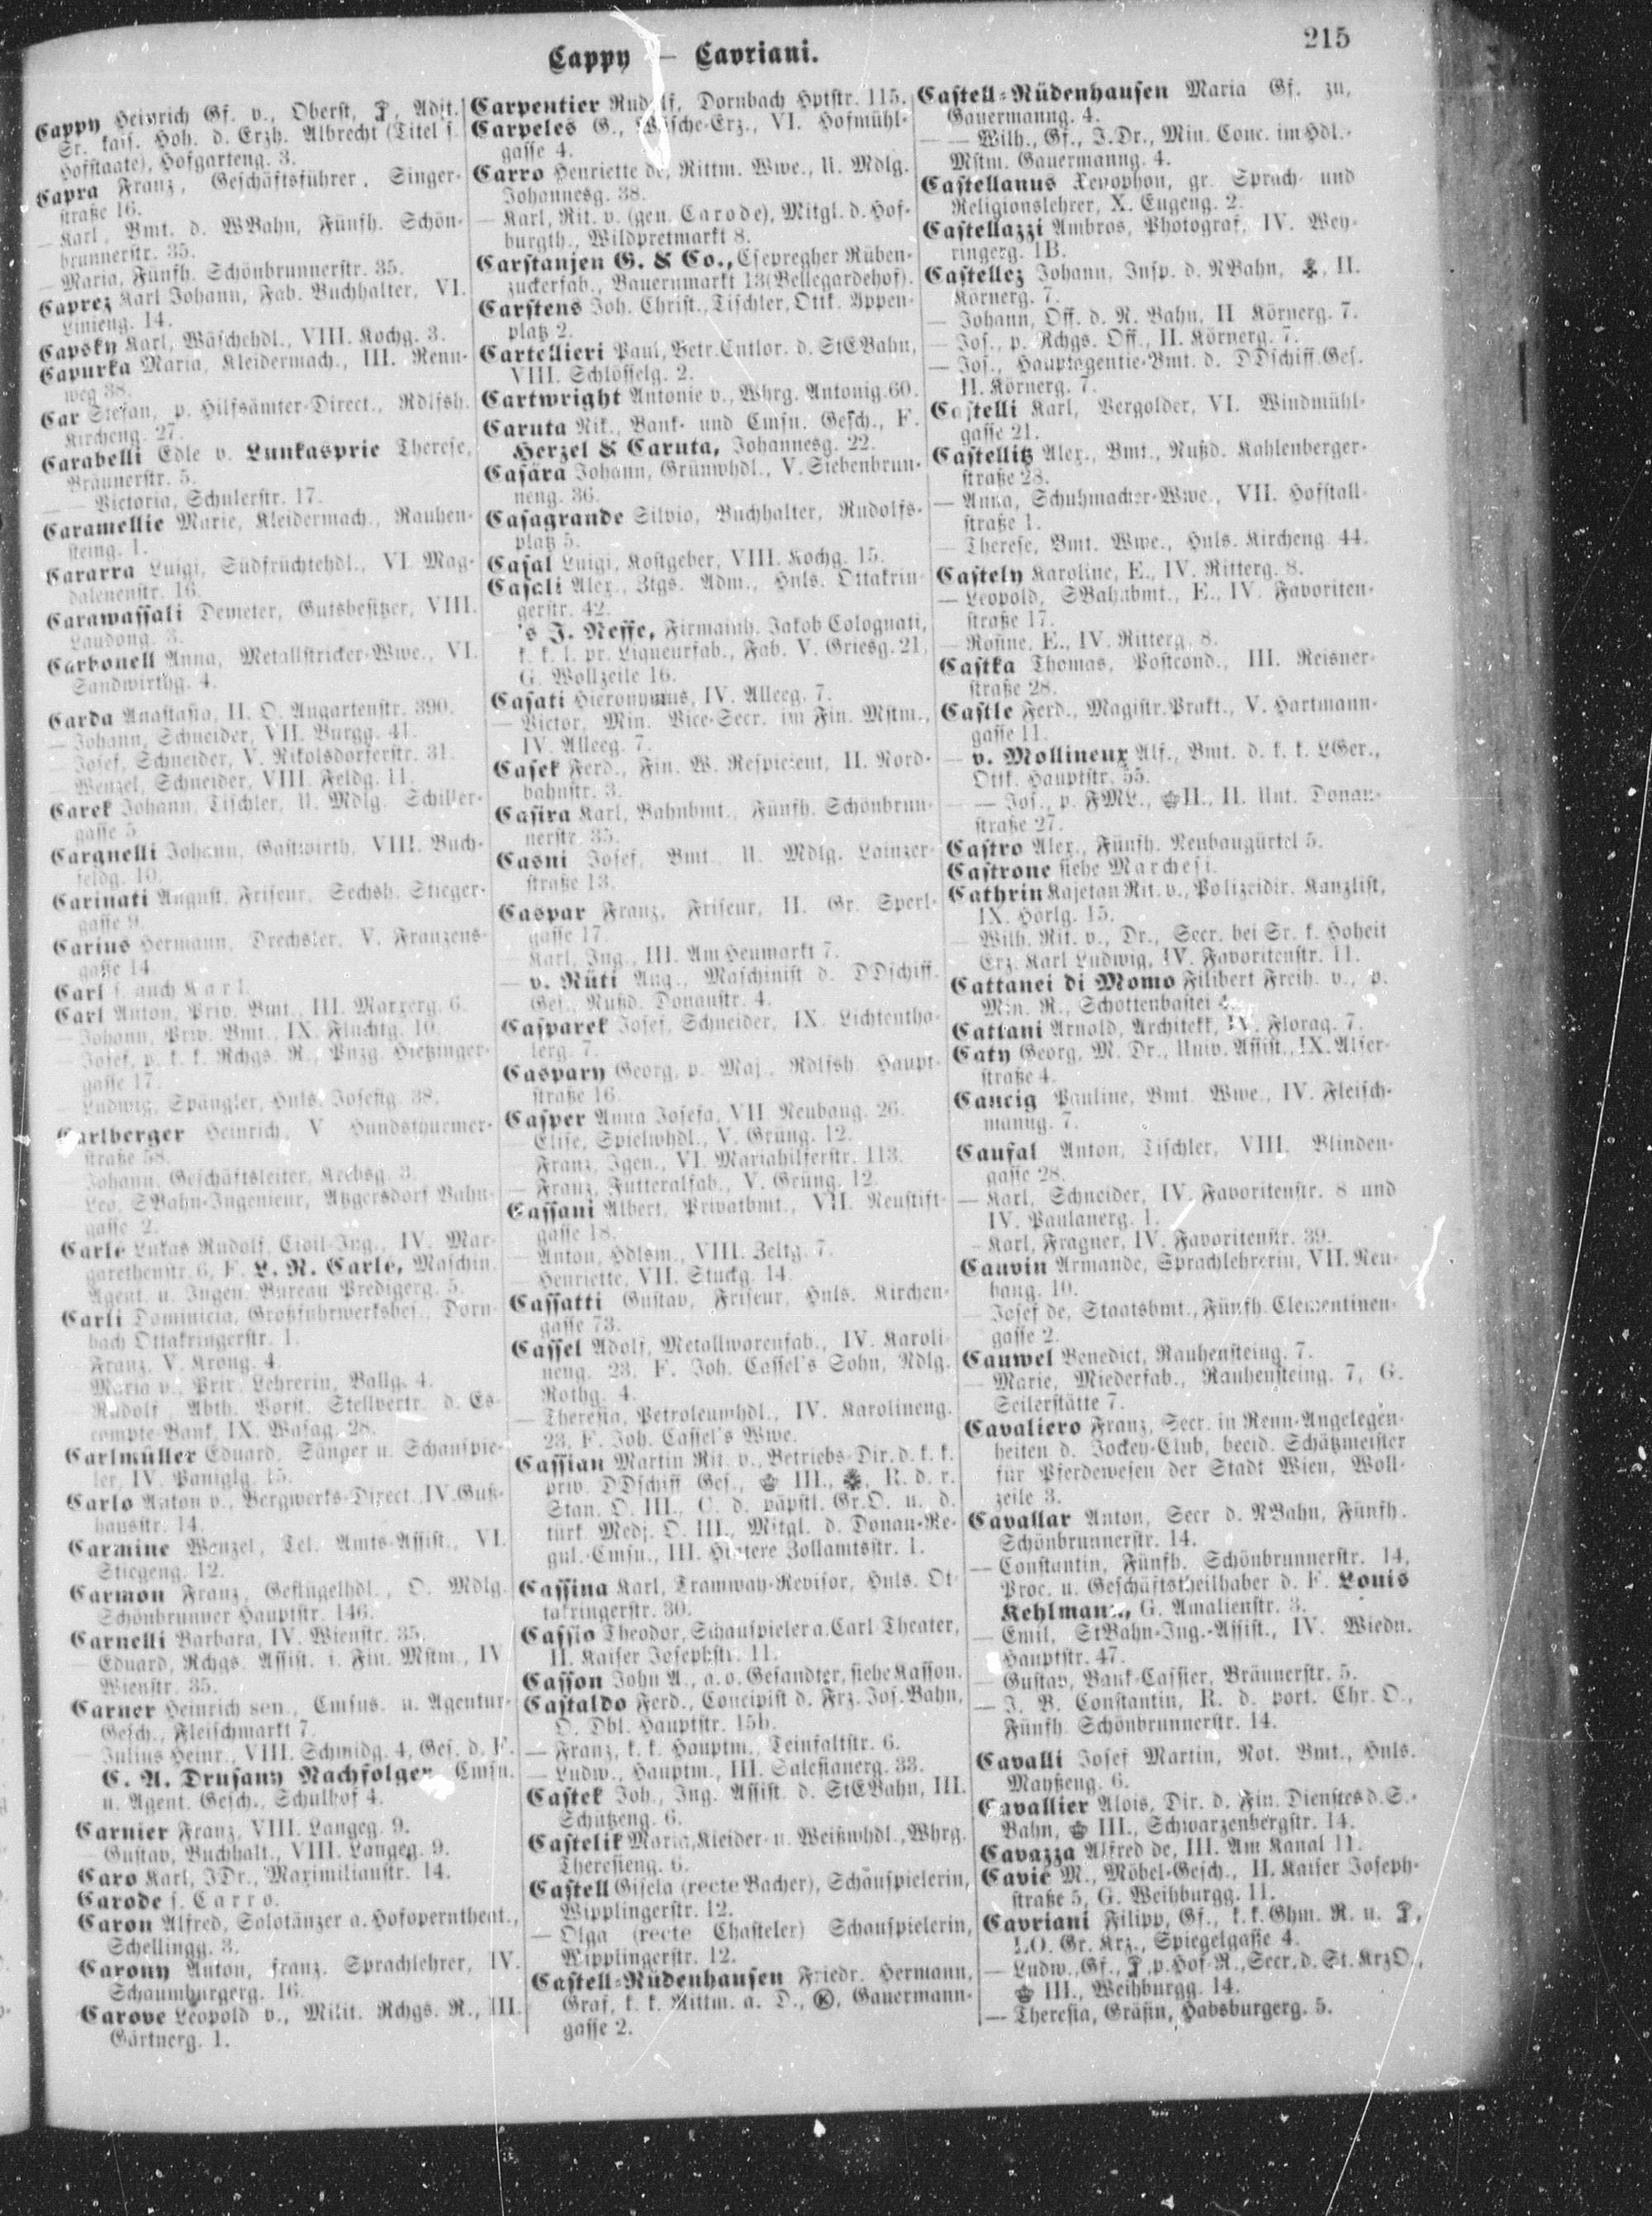 215
Cappy — Capriani.
Cappy Heinrich Gf. v., Oberst, Adjt.
Sr. kais. Hoh. d. Erzh. Albrecht (Titel s.
Hofstaate), Hofgarteng. 3.
Capra Franz, Geschäftsführer, Singer-
straße 16.
— Karl, Bmt. d. WBahn, Fünfh. Schön-
brunnerstr. 35.
— Maria, Fünfh. Schönbrunnerstr. 35.
Caprez Karl Johann, Fab. Buchhalter, VI.
Linieng. 14.
Capsky Karl, Wäschehdl., VIII. Kochg. 3.
Capurka Maria, Kleidermach., III. Renn-
weg 38.
Car Stefan, p. Hilfsämter-Direct., Rdlfsh.
Kircheng. 27.
Carabelli Edle v. Lunkasprie Therese,
Bräunerstr. 5.
— — Victoria, Schulerstr. 17.
Caramellie Marie, Kleidermach., Rauhen-
steing. 1.
Cararra Luigi, Südfrüchtehdl., VI. Mag-
dalenenstr. 16.
Carawassali Demeter, Gutsbesitzer, VIII.
Laudong. 3.
Carbonell Anna, Metallstricker-Wwe., VI.
Sandwirthg. 4.
Carda Anastasia, II. O. Augartenstr. 390.
— Johann, Schneider, VII. Burgg. 41.
— Josef, Schneider, V. Nikolsdorferstr. 31.
— Wenzel, Schneider, VIII. Feldg. 11.
Carek Johann, Tischler, U. Mdlg. Schiller-
gasse 5.
Cargnelli Johann, Gastwirth, VIII. Buch-
feldg. 10.
Carinati August, Friseur, Sechsh. Stieger-
gasse 9.
Carius Hermann, Drechsler, V. Franzens-
gasse 14.
Carl s. auch Karl.
Carl Anton, Priv. Bmt., III. Marxerg. 6.
— Johann, Priv. Bmt., IX. Fluchtg. 10.
— Josef, p. k. k. Rchgs. R., Pnzg. Hietzinger-
gasse 17.
— Ludwig, Spängler, Hnls. Josefig. 38.
Carlberger Heinrich, V. Hundsthurmer-
straße 58.
— Johann, Geschäftsleiter, Krebsg. 3.
— Leo, SBahn-Ingenieur, Atzgersdorf Bahn-
gasse 2.
Carle Lukas Rudolf, Civil-Ing., IV. Mar-
garethenstr. 6, F. L. R. Carle, Maschin.
Agent. u. Ingen. Bureau Predigerg. 5.
Carli Dominicia, Großfuhrwerksbes., Dorn-
bach Ottakringerstr. 1.
— Franz, V. Krong. 4.
— Maria v., Priv. Lehrerin, Ballg. 4.
— Rudolf, Abth. Vorst. Stellvertr. d. Es-
compte-Bank, IX. Wasag. 28.
Carlmüller Eduard, Sänger u. Schauspie-
ler, IV. Paniglg. 15.
Carlo Anton v., Bergwerks-Direct. IV. Guß-
hausstr. 14.
Carmine Wenzel, Tel. Amts-Assist., VI.
Stiegeng. 12.
Carmon Franz, Geflügelhdl., O. Mdlg.
Schönbrunner Hauptstr. 146.
Carnelli Barbara, IV. Wienstr. 35.
— Eduard, Rchgs. Assist. i. Fin. Mstm., IV
Wienstr. 35.
Carner Heinrich sen., Cmsns. u. Agentur-
Gesch., Fleischmarkt 7.
— Julius Heinr., VIII. Schmidg. 4, Ges. d. F.
C. A. Drusany Nachfolger, Cmsn.
u. Agent. Gesch., Schulhof 4.
Carnier Franz, VIII. Langeg. 9.
— Gustav, Buchhalt., VIII. Langeg. 9.
Caro Karl, JDr., Maximilianstr. 14.
Carode s. Carro.
Caron Alfred, Solotänzer a. Hofoperntheat.,
Schellingg. 3.
Carony Anton, franz. Sprachlehrer, IV.
Schaumburgerg. 16.
Carove Leopold v., Milit. Rchgs. R., III.
Gärtnerg. 1.
Carpentier Rudolf, Dornbach Hptstr. 115.
Carpeles G., Wäsche-Erz., VI. Hofmühl-
gasse 4.
Carro Henriette de, Rittm. Wwe., U. Mdlg.
Johannesg. 38.
— Karl, Rit. v. (gen. Carode), Mitgl. d. Hof-
burgth., Wildpretmarkt 8.
Carstanjen G. & Co., Csepregher Rüben-
zuckerfab., Bauernmarkt 13 (Bellegardehof).
Carstens Joh. Christ., Tischler, Ottk. Appen-
platz 2.
Cartellieri Paul, Betr. Cntlor. d. StEBahn,
VIII. Schlösselg. 2.
Cartwright Antonie v., Whrg. Antonig. 60.
Caruta Nik., Bank- und Cmsn. Gesch., F.
Herzel & Caruta, Johannesg. 22.
Casära Johann, Grünwhdl., V. Siebenbrun-
neng. 36.
Casagrande Silvio, Buchhalter, Rudolfs-
platz 5.
Casal Luigi, Kostgeber, VIII. Kochg. 15.
Casali Alex., Ztgs. Adm., Hnls. Ottakrin-
gerstr. 42.
— 's J. Neffe, Firmainh. Jakob Colognati,
k. k. l. pr. Liqueurfab., Fab. V. Griesg. 21,
G. Wollzeile 16.
Casati Hieronymus, IV. Alleeg. 7.
— Victor, Min. Vice-Secr. im Fin. Mstm.,
IV. Alleeg. 7.
Casek Ferd., Fin. W. Respicient, II. Nord-
bahnstr. 3.
Casira Karl, Bahnbmt., Fünfh. Schönbrun-
nerstr. 35.
Casni Josef, Bmt. U. Mdlg. Lainzer-
straße 13.
Caspar Franz, Friseur, II. Gr. Sperl-
gasse 17.
— Karl, Ing., III. Am Heumarkt 7.
— v. Rüti Aug., Maschinist d. DDschiff.
Ges., Nußd. Donaustr. 4.
Casparek Josef, Schneider, IX. Lichtentha-
lerg. 7.
Caspary Georg, p. Maj., Rdlfsh. Haupt-
straße 16.
Casper Anna Josefa, VII. Neubaug. 26.
— Elise, Spielwhdl., V. Grüng. 12.
— Franz, Igen., VI. Mariahilferstr. 113.
— Franz, Futteralfab., V. Grüng. 12.
Cassani Albert, Privatbmt., VII. Neustift-
gasse 18.
— Anton, Hdlsm., VIII. Zeltg. 7.
— Henriette, VII. Stuckg. 14.
Cassatti Gustav, Friseur, Hnls. Kirchen-
gasse 73.
Cassel Adolf, Metallwarenfab., IV. Karoli-
neng. 23, F. Joh. Cassel's Sohn, Ndlg.
Rothg. 4.
— Theresia, Petroleumhdl., IV. Karolineng.
23, F. Joh. Cassel's Wwe.
Cassian Martin Rit. v., Betriebs-Dir. d. k. k.
priv. DDschiff Ges., III., R. d. r.
Stan. O. III., C. d. päpstl. Gr. O. u. d.
türk. Medj. O. III., Mitgl. d. Donau-Re-
gul.-Cmsn., III. Hintere Zollamtsstr. 1.
Cassina Karl, Tramway-Revisor, Hnls. Ot-
takringerstr. 30.
Cassio Theodor, Schauspieler a. Carl-Theater,
II. Kaiser Josephstr. 11.
Casson John A., a. o. Gesandter, siehe Kasson.
Castaldo Ferd., Concipist d. Frz. Jos. Bahn,
O. Dbl. Hauptstr. 15b.
— Franz, k. k. Hauptm., Teinfaltstr. 6.
— Ludw., Hauptm., III. Salesianerg. 33.
Castek Joh., Ing. Assist. d. StEBahn, III.
Schützeng. 6.
Castelik Maria, Kleider- u. Weißwhdl., Whrg.
Theresieng. 6.
Castell Gisela (recte Bacher), Schauspielerin,
Wipplingerstr. 12.
— Olga (recte Chasteler) Schauspielerin,
Wipplingerstr. 12.
Castell-Rüdenhausen Friedr. Hermann,
Graf, k. k. Rittm. a. D., Ⓚ, Gauermann-
gasse 2.
Castell-Rüdenhausen Maria Gf. zu,
Gauermanng. 4.
— — Wilh., Gf., J.Dr., Min. Conc. im Hdl.-
Mstm. Gauermanng. 4.
Castellanus Xenophon, gr. Sprach- und
Religionslehrer, X. Eugeng. 2.
Castellazzi Ambros, Photograf, IV. Wey-
ringerg. 1B.
Castellez Johann, Insp. d. NBahn, II.
Körnerg. 7.
— Johann, Off. d. N. Bahn, II Körnerg. 7.
— Jos., p. Rchgs. Off., II. Körnerg. 7.
— Jos., Hauptagentie-Bmt. d. DDschiff. Ges.
II. Körnerg. 7.
Castelli Karl, Vergolder, VI. Windmühl-
gasse 21.
Castellitz Alex., Bmt., Nußd. Kahlenberger-
straße 28.
— Anna, Schuhmacher-Wwe., VII. Hofstall-
straße 1.
— Therese, Bmt. Wwe., Hnls. Kircheng. 44.
Castely Karoline, E., IV. Ritterg. 8.
— Leopold, SBahnbmt., E., IV. Favoriten-
straße 17.
— Rosine, E., IV. Ritterg. 8.
Castka Thomas, Postcond., III. Reisner-
straße 28.
Castle Ferd., Magistr. Prakt., V. Hartmann-
gasse 11.
— v. Mollineux Alf., Bmt. d. k. k. LGer.,
Ottk. Hauptstr. 55.
— — Jos., p. FML., II., II. Unt. Donau-
straße 27.
Castro Alex., Fünfh. Neubaugürtel 5.
Castrone siehe Marchesi.
Cathrin Kajetan Rit. v., Polizeidir. Kanzlist,
IX. Hörlg. 15.
— Wilh. Rit. v., Dr., Secr. bei Sr. k. Hoheit
Erz. Karl Ludwig, IV. Favoritenstr. 11.
Cattanei di Momo Filibert Freih. v., p.
Min. R., Schottenbastei 4.
Cattani Arnold, Architekt, IV. Florag. 7.
Caty Georg, M. Dr., Univ. Assist., IX. Alser-
straße 4.
Caucig Pauline, Bmt. Wwe., IV. Fleisch-
manng. 7.
Causal Anton, Tischler, VIII. Blinden-
gasse 28.
— Karl, Schneider, IV. Favoritenstr. 8 und
IV. Paulanerg. 1.
— Karl, Fragner, IV. Favoritenstr. 39.
Cauvin Armande, Sprachlehrerin, VII. Neu-
baug. 10.
— Josef de, Staatsbmt., Fünfh. Clementinen-
gasse 2.
Cauwel Benedict, Rauhensteing. 7.
— Marie, Miederfab., Rauhensteing. 7, G.
Seilerstätte 7.
Cavaliero Franz, Secr. in Renn-Angelegen-
heiten d. Jockey-Club, beeid. Schätzmeister
für Pferdewesen der Stadt Wien, Woll-
zeile 3.
Cavallar Anton, Secr d. NBahn, Fünfh.
Schönbrunnerstr. 14.
— Constantin, Fünfh. Schönbrunnerstr. 14,
Proc. u. Geschäftstheilhaber d. F. Louis
Kehlmann, G. Amalienstr. 3.
— Emil, StBahn-Ing.-Assist., IV. Wiedn.
Hauptstr. 47.
— Gustav, Bank-Cassier, Bräunerstr. 5.
— J. B. Constantin, R. d. port. Chr. O.,
Fünfh. Schönbrunnerstr. 14.
Cavalli Josef Martin, Not. Bmt., Hnls.
Mayßeng. 6.
Cavallier Alois, Dir. d. Fin. Dienstes d. S.-
Bahn, III., Schwarzenbergstr. 14.
Cavazza Alfred de, III. Am Kanal 11.
Cavic M., Möbel-Gesch., II. Kaiser Joseph-
straße 5, G. Weihburgg. 11.
Cavriani Filipp, Gf., k. k. Ghm. R. u.
LO. Gr. Krz., Spiegelgaße 4.
— Ludw., Gf., p. Hof-R., Secr. d. St. KrzO.,
III., Weihburgg. 14.
— Theresia, Gräfin, Habsburgerg. 5.